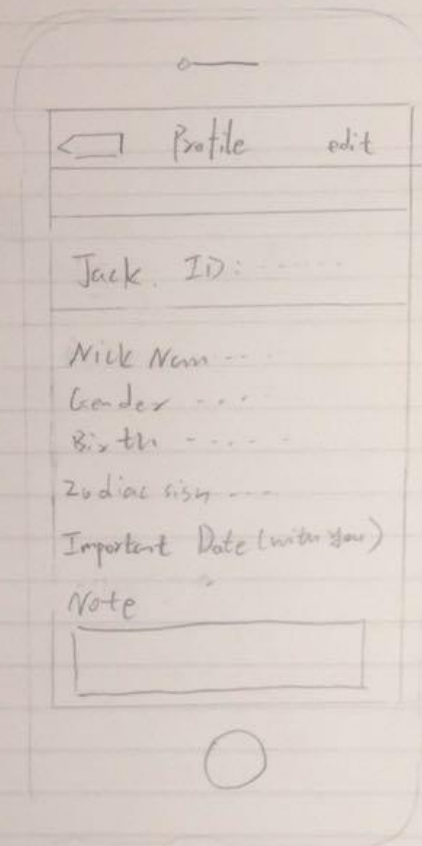 Profile edit
Jack. ID: ------
Nick Nam ---
Gender ----
Birth -----
Zodiac sign ---
Important Date (with you)
Note